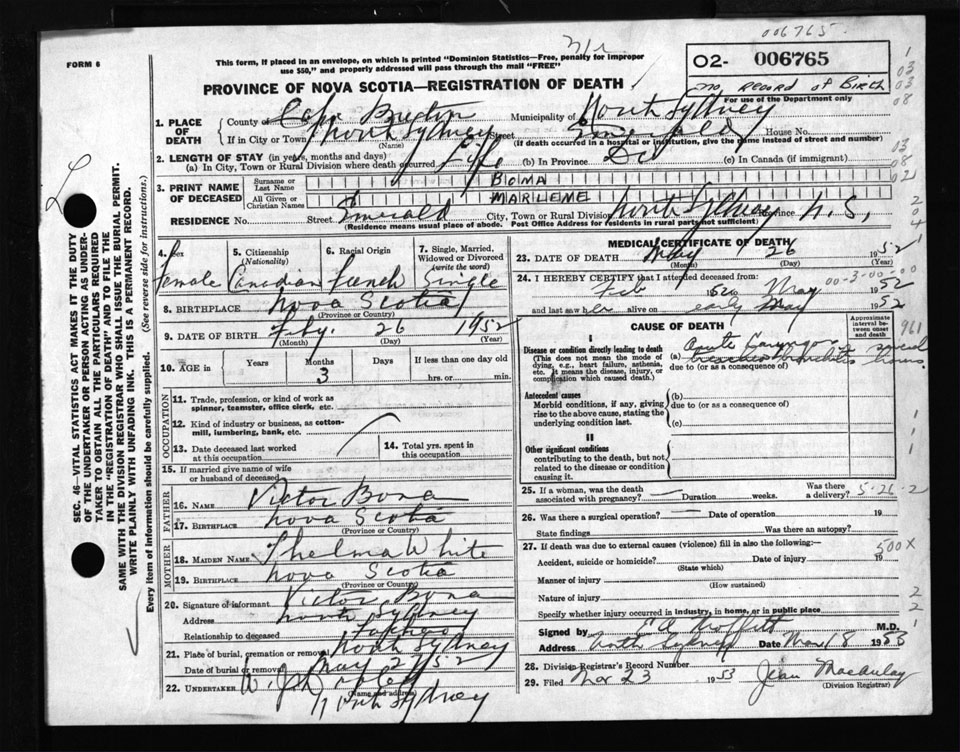 006765
FORM 6
This form, if placed in an envelope, on which is printed "Dominion Statistics—Free, penalty for improper
use $50," and properly addressed will pass through the mail "FREE"
02- 006765
no record of Birth
For use of the Department only
PROVINCE OF NOVA SCOTIA—REGISTRATION OF DEATH
1. PLACE OF DEATH
County of Cape Breton Municipality of North Sydney
If in City or Town North Sydney Street Emerald House No.
(Name) (If death occurred in a hospital or institution, give the name instead of street and number)
2. LENGTH OF STAY (in years, months and days)
(a) In City, Town or Rural Division where death occurred Life (b) In Province Do (c) In Canada (if immigrant)
3. PRINT NAME OF DECEASED
Surname or Last Name BONA
All Given or Christian Names MARLEME
RESIDENCE No. Street Emerald City, Town or Rural Division North Sydney Province N.S.
(Residence means usual place of abode. Post Office Address for residents in rural parts not sufficient)
4. Sex Female
5. Citizenship (Nationality) Canadian
6. Racial Origin French
7. Single, Married, Widowed or Divorced (write the word) Single
8. BIRTHPLACE Nova Scotia
(Province or Country)
9. DATE OF BIRTH Feby. 26 1952
(Month) (Day) (Year)
10. AGE in Years Months 3 Days If less than one day old hrs. or min.
OCCUPATION
11. Trade, profession or kind of work as spinner, teamster, office clerk, etc.
12. Kind of industry or business, as cotton-mill, lumbering, bank, etc.
13. Date deceased last worked at this occupation
14. Total yrs. spent in this occupation
15. If married give name of wife or husband of deceased
FATHER
16. NAME Victor Bona
17. BIRTHPLACE Nova Scotia
(Province or Country)
MOTHER
18. MAIDEN NAME Thelma White
19. BIRTHPLACE Nova Scotia
(Province or Country)
20. Signature of informant Victor Bona
Address North Sydney
Relationship to deceased Father
21. Place of burial, cremation or removal North Sydney
Date of burial or removal May 27/52
22. UNDERTAKER
(Name and address)
North Sydney
MEDICAL CERTIFICATE OF DEATH
23. DATE OF DEATH May 26 1952
(Month) (Day)
24. I HEREBY CERTIFY that I attended deceased from:
00-3-00-00
Feb 1952 to May 1952
and last saw her alive on early May 1952
CAUSE OF DEATH
Approximate interval between onset and death
961
I
Disease or condition directly leading to death
(This does not mean the mode of dying, e.g., heart failure, asthenia, etc. It means the disease, injury, or complication which caused death.)
(a) Acute
due to (or as a consequence of)
Antecedent causes
Morbid conditions, if any, giving rise to the above cause, stating the underlying condition last.
(b)
due to (or as a consequence of)
(c)
II
Other significant conditions
contributing to the death, but not related to the disease or condition causing it.
25. If a woman, was the death associated with pregnancy? Duration weeks. Was there a delivery? 5-26-2
26. Was there a surgical operation? Date of operation 19
State findings Was there an autopsy?
27. If death was due to external causes (violence) fill in also the following:—
500X
Accident, suicide or homicide? Date of injury 19
(State which)
Manner of injury
(How sustained)
Nature of injury
Specify whether injury occurred in industry, in home, or in public place
Signed by Moffitt M.D.
Address North Sydney Date Mar 18 1953
28. Division Registrar's Record Number
29. Filed Mar 23 1953 Jean MacAulay
(Division Registrar)
SEC. 46—VITAL STATISTICS ACT MAKES IT THE DUTY
OF THE UNDERTAKER OR PERSON ACTING AS UNDER-
TAKER TO OBTAIN ALL THE PARTICULARS REQUIRED
IN THE "REGISTRATION OF DEATH" AND TO FILE THE
SAME WITH THE DIVISION REGISTRAR WHO SHALL ISSUE THE BURIAL PERMIT.
WRITE PLAINLY WITH UNFADING INK. THIS IS A PERMANENT RECORD.
Every item of information should be carefully supplied. (See reverse side for instructions.)